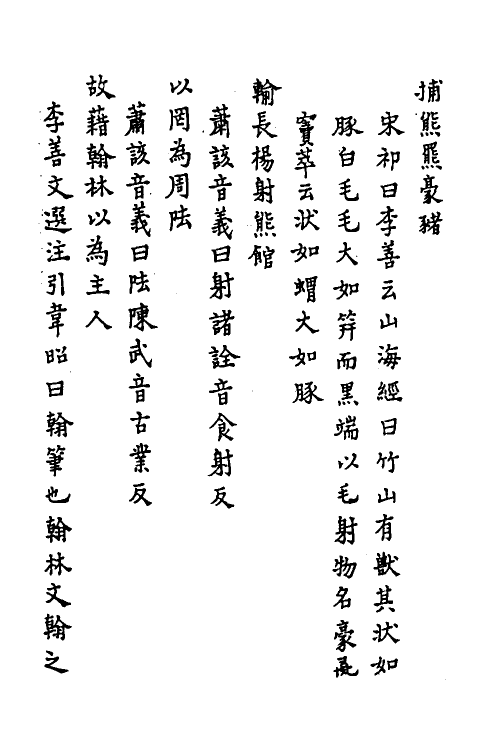 捕熊羆豪豬
宋祁曰李善云山海經曰竹山有獸其状如
豚白毛毛大如筓而黒端以毛射物名豪彘
竇苹云状如蝟大如豚
輸長楊射熊館
蕭該音義曰射諸詮音食射反
以罔為周阹
蕭該音義曰阹陳武音古業反
故藉翰林以為主人
李善文選注引韋昭曰翰筆也翰林文翰之